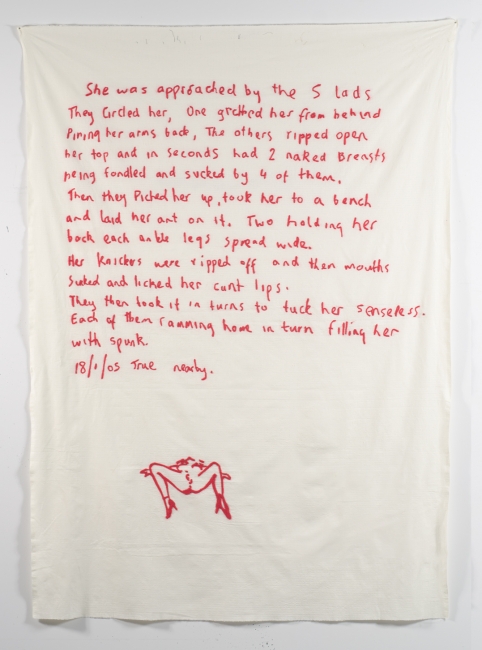 She was approached by the 5 lads
They Circled her, One grabbed her from behind
Pining her arms back, The others ripped open
her top and in seconds had 2 naked Breasts
being fondled and sucked by 4 of them.
Then they Picked her up, took her to a bench
and laid her out on it. Two holding her
back each ankle legs spread wide.
Her Knickers were ripped off and then mouths
Sucked and licked her cunt lips.
They then took it in turns to fuck her senseless.
Each of them ramming home in turn filling her
with spunk.
18/1/05 True nearby.